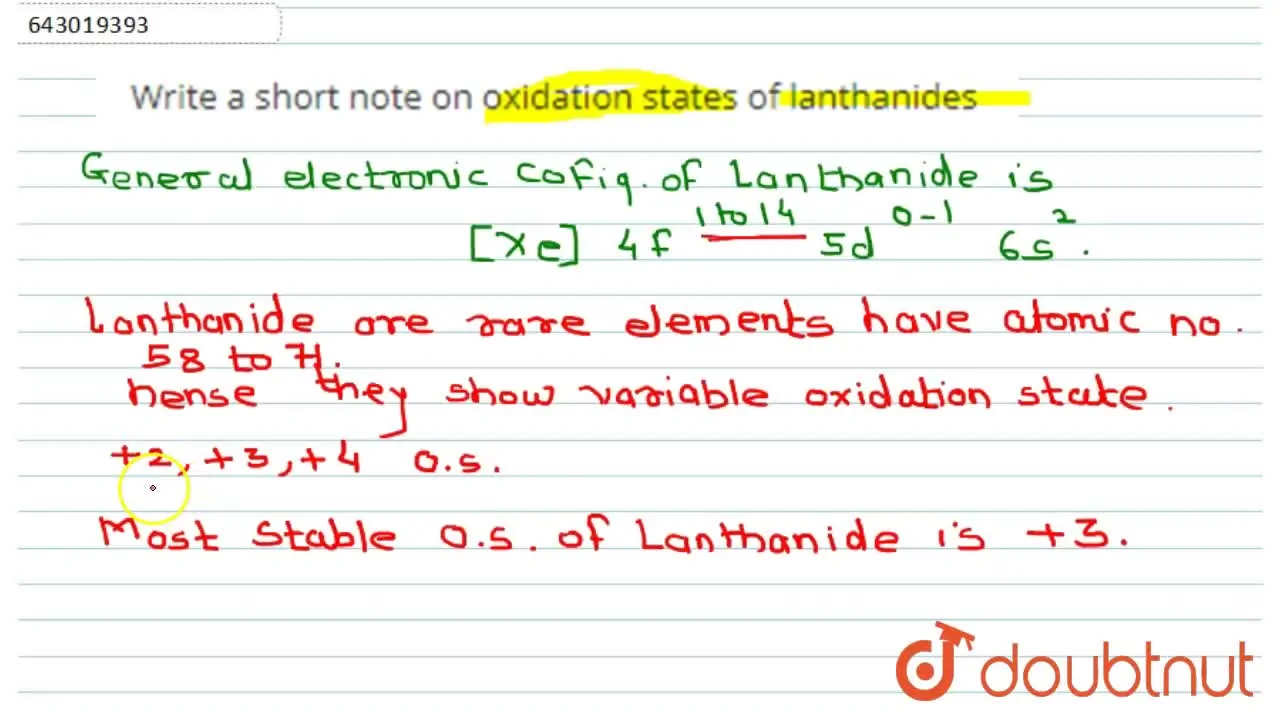 643019393
Write a short note on oxidation states of lanthanides
General electronic cofig. of Lanthanide is
[Xe] 4f 1 to 14 5d 0-1 6s 2 .
Lanthanide are rare elements have atomic no.
58 to 71.
hense they show variable oxidation state.
+2, +3, +4 o.s.
Most stable o.s. of Lanthanide is +3.
doubtnut